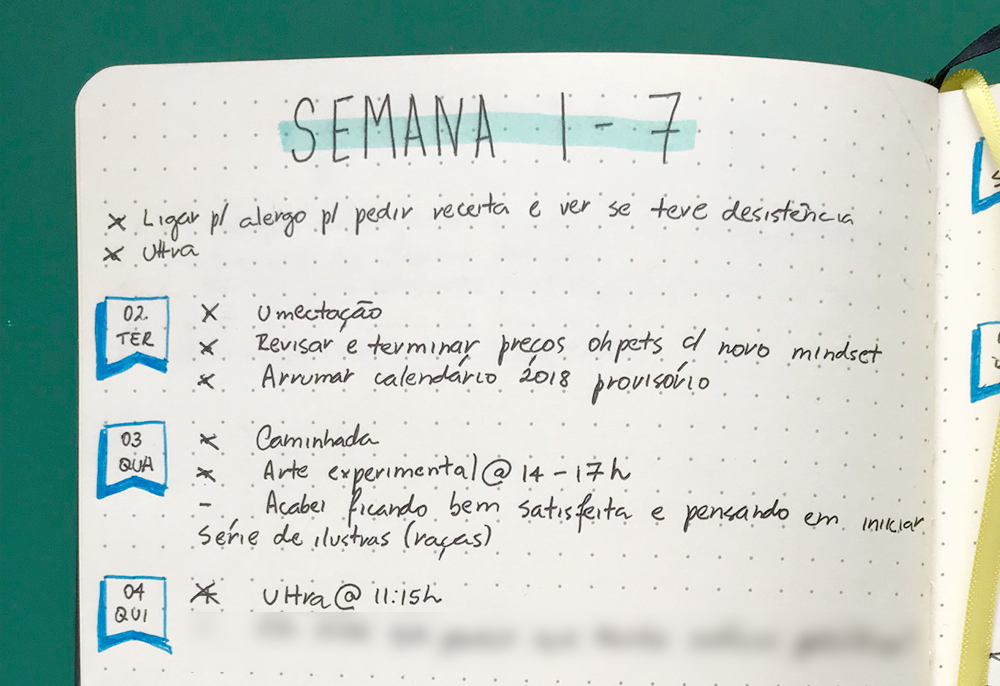 SEMANA 1 - 7
x Ligar p/ alergo p/ pedir receita e ver se teve desistência
x Ultra
02 TER
x Umectação
x Revisar e terminar preços ohpets c/ novo mindset
x Arrumar calendário 2018 provisório
03 QUA
x Caminhada
x Arte experimental @ 14 - 17h
- Acabei ficando bem satisfeita e pensando em iniciar
série de ilustras (raças)
04 QUI
x Ultra @ 11:15h